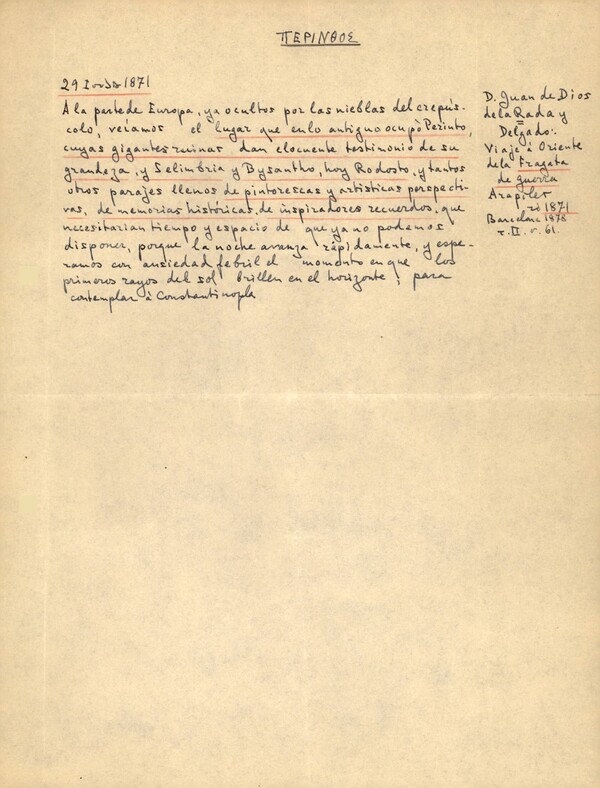 ΠΕΡΙΝΘΟΣ
29 Ιουλίου 1871
A la parte de Europa, ya ocultos por las nieblas del crepús-
colo, veíamos el lugar que en lo antiguo ocupò Perinto,
cuyas gigantes ruinas dan elocuente testimonio de su
grandeza, y Selimbria y Bysantho, hoy Rodosto, y tantos
otros parajes llenos de pintorescas y artísticas perspecti-
vas, de memorias históricas, de inspiradores recuerdos, que
necesitarian tiempo y espacio de que ya no podemos
disponer, porque la noche avanza ràpidamente, y espe-
ramos con ansiedad febril el momento en que los
primeros rayos del sol brillen en el horizonte, para
contemplar à Constantinopla
D. Juan de Dios
de la Rada y
Delgado:
Viaje à Oriente
de la Fragata
de guerra
Arapiles
τὸ 1871
Barcelona 1878
τ. II. σ. 61.